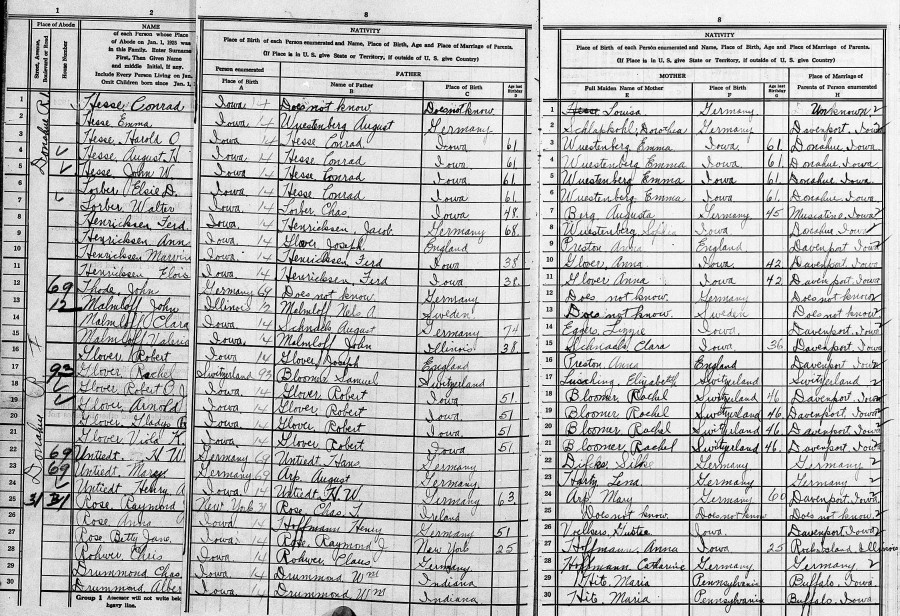 1 2 8 8
Place of Abode NAME of each Person whose Place of Abode on Jan. 1, 1925 was in this Family. Enter Surname First, Then Given Name and middle Initial, if any. Include Every Person Living on Jan. 1, Omit Children born since Jan. 1,
Street, Avenue, Boulevard or Road House Number
NATIVITY
Place of Birth of each Person enumerated and Name, Place of Birth, Age and Place of Marriage of Parents.
(If Place is in U. S. give State or Territory, if outside of U. S. give Country)
Person enumerated FATHER
Place of Birth A Name of Father B Place of Birth C Age last Birthday D
NATIVITY
Place of Birth of each Person enumerated and Name, Place of Birth, Age and Place of Marriage of Parents.
(If Place is in U. S. give State or Territory, if outside of U. S. give Country)
MOTHER Place of Marriage of Parents of Person enumerated H
Full Maiden Name of Mother E Place of Birth F Age last Birthday G
1 Hesse Conrad Iowa 14 Does not know Does not know 1 Louisa Germany Unknown 2
2 Hesse Emma Iowa 14 Wuestenberg August Germany 2 Schlapkohl, Dorothea Germany Davenport, Iowa 2
3 Hesse, Harold O Iowa 14 Hesse Conrad Iowa 61 3 Wuestenberg Emma Iowa 61 Donahue Iowa
4 Hesse, August H Iowa 14 Hesse Conrad Iowa 61 4 Wuestenberg Emma Iowa 61 Donahue, Iowa
5 Hesse, John W. Iowa 14 Hesse Conrad Iowa 61 5 Wuestenberg Emma Iowa 61 Donahue Iowa
6 Lorber Elsie D. Iowa 14 Hesse Conrad Iowa 61 6 Wuestenberg Emma Iowa 61 Donahue, Iowa
7 Lorber Walter Iowa 14 Lorber Chas. Iowa 48 7 Berg Augusta Germany 45 Muscatine, Iowa 2
8 Henricksen Ferd Iowa 14 Henricksen, Jacob Germany 68 8 Wuestenberg Sophia Iowa Donahue Iowa 2
9 Henricksen Ann Iowa 14 Glover Joseph England 9 Preston Anna England Davenport Iowa 2
10 Henricksen Marvin Iowa 14 Henricksen Ferd Iowa 38 10 Glover, Anna Iowa 42 Davenport, Iowa
11 Henricksen Elois Iowa 14 Henricksen, Ferd Iowa 38 11 Glover Anna Iowa 42 Davenport, Iowa
12 69 Thode, John Germany 69 Does not know Germany 12 Does not know Germany Does not know 2
13 12 Malmloff John Illinois 12 Malmloff Nels A. Sweden 13 Does not know Sweden Does not know 2
14 Malmloff Clara Iowa 14 Schnaels August Germany 74 14 Eggers, Linnie Iowa Davenport, Iowa 2
15 Malmloff Valeria Iowa 14 Malmloff John Illinois 38 15 Schnaels Clara Iowa 36 Davenport, Iowa
16 Glover Robert Iowa 14 Glover, Joseph England 16 Preston Anna England Davenport Iowa 2
17 93 Glover, Rachel Switzerland 93 Bloomer Samuel Switzerland 17 Elizabeth Switzerland Switzerland 2
18 Glover Robert O. J. Iowa 14 Glover Robert Iowa 51 18 Bloomer Rachel Switzerland 46 Davenport, Iowa
19 Glover, Arnold Iowa 14 Glover Robert Iowa 51 19 Bloomer Rachel Switzerland 46 Davenport, Iowa
20 Glover Gladys R Iowa 14 Glover Robert Iowa 51 20 Bloomer Rachel Switzerland 46 Davenport Iowa
21 Glover Viola K. Iowa 14 Glover Robert Iowa 51 21 Bloomer Rachel Switzerland 46 Davenport Iowa
22 69 Untiedt H W. Germany 69 Untiedt Hans Germany 22 Silke Germany Germany 2
23 69 Untiedt Mary Germany 69 Arp August Germany 23 Lena Germany Germany 2
24 Untiedt Henry A Iowa 14 Untiedt H W. Germany 63 24 Arp Mary Germany 60 Davenport, Iowa
25 31 31 Rose, Raymond J New York 31 Rose Chas. T Ireland 25 Does not know Does not know Does not know 2
26 Rose Anna Iowa 14 Hoffmann Henry Germany 51 26 Iowa Davenport Iowa 2
27 Rose Betty Jane Iowa 14 Rose, Raymond J New York 25 27 Hoffmann, Anna Iowa 25 Rock Island, Illinois
28 Rohwer Chris Iowa 14 Rohwer Claus Germany 28 Hoffmann Catharine Germany Germany 2
29 Drummond Chas. Iowa 14 Drummond Wm Indiana 29 Hite Maria Pennsylvania Buffalo, Iowa
30 Drummond Albert Iowa 14 Drummond Wm Indiana 30 Hite Maria Pennsylvania Buffalo, Iowa
Donahue R1
Group 1 Assessor will not write below heavy line.